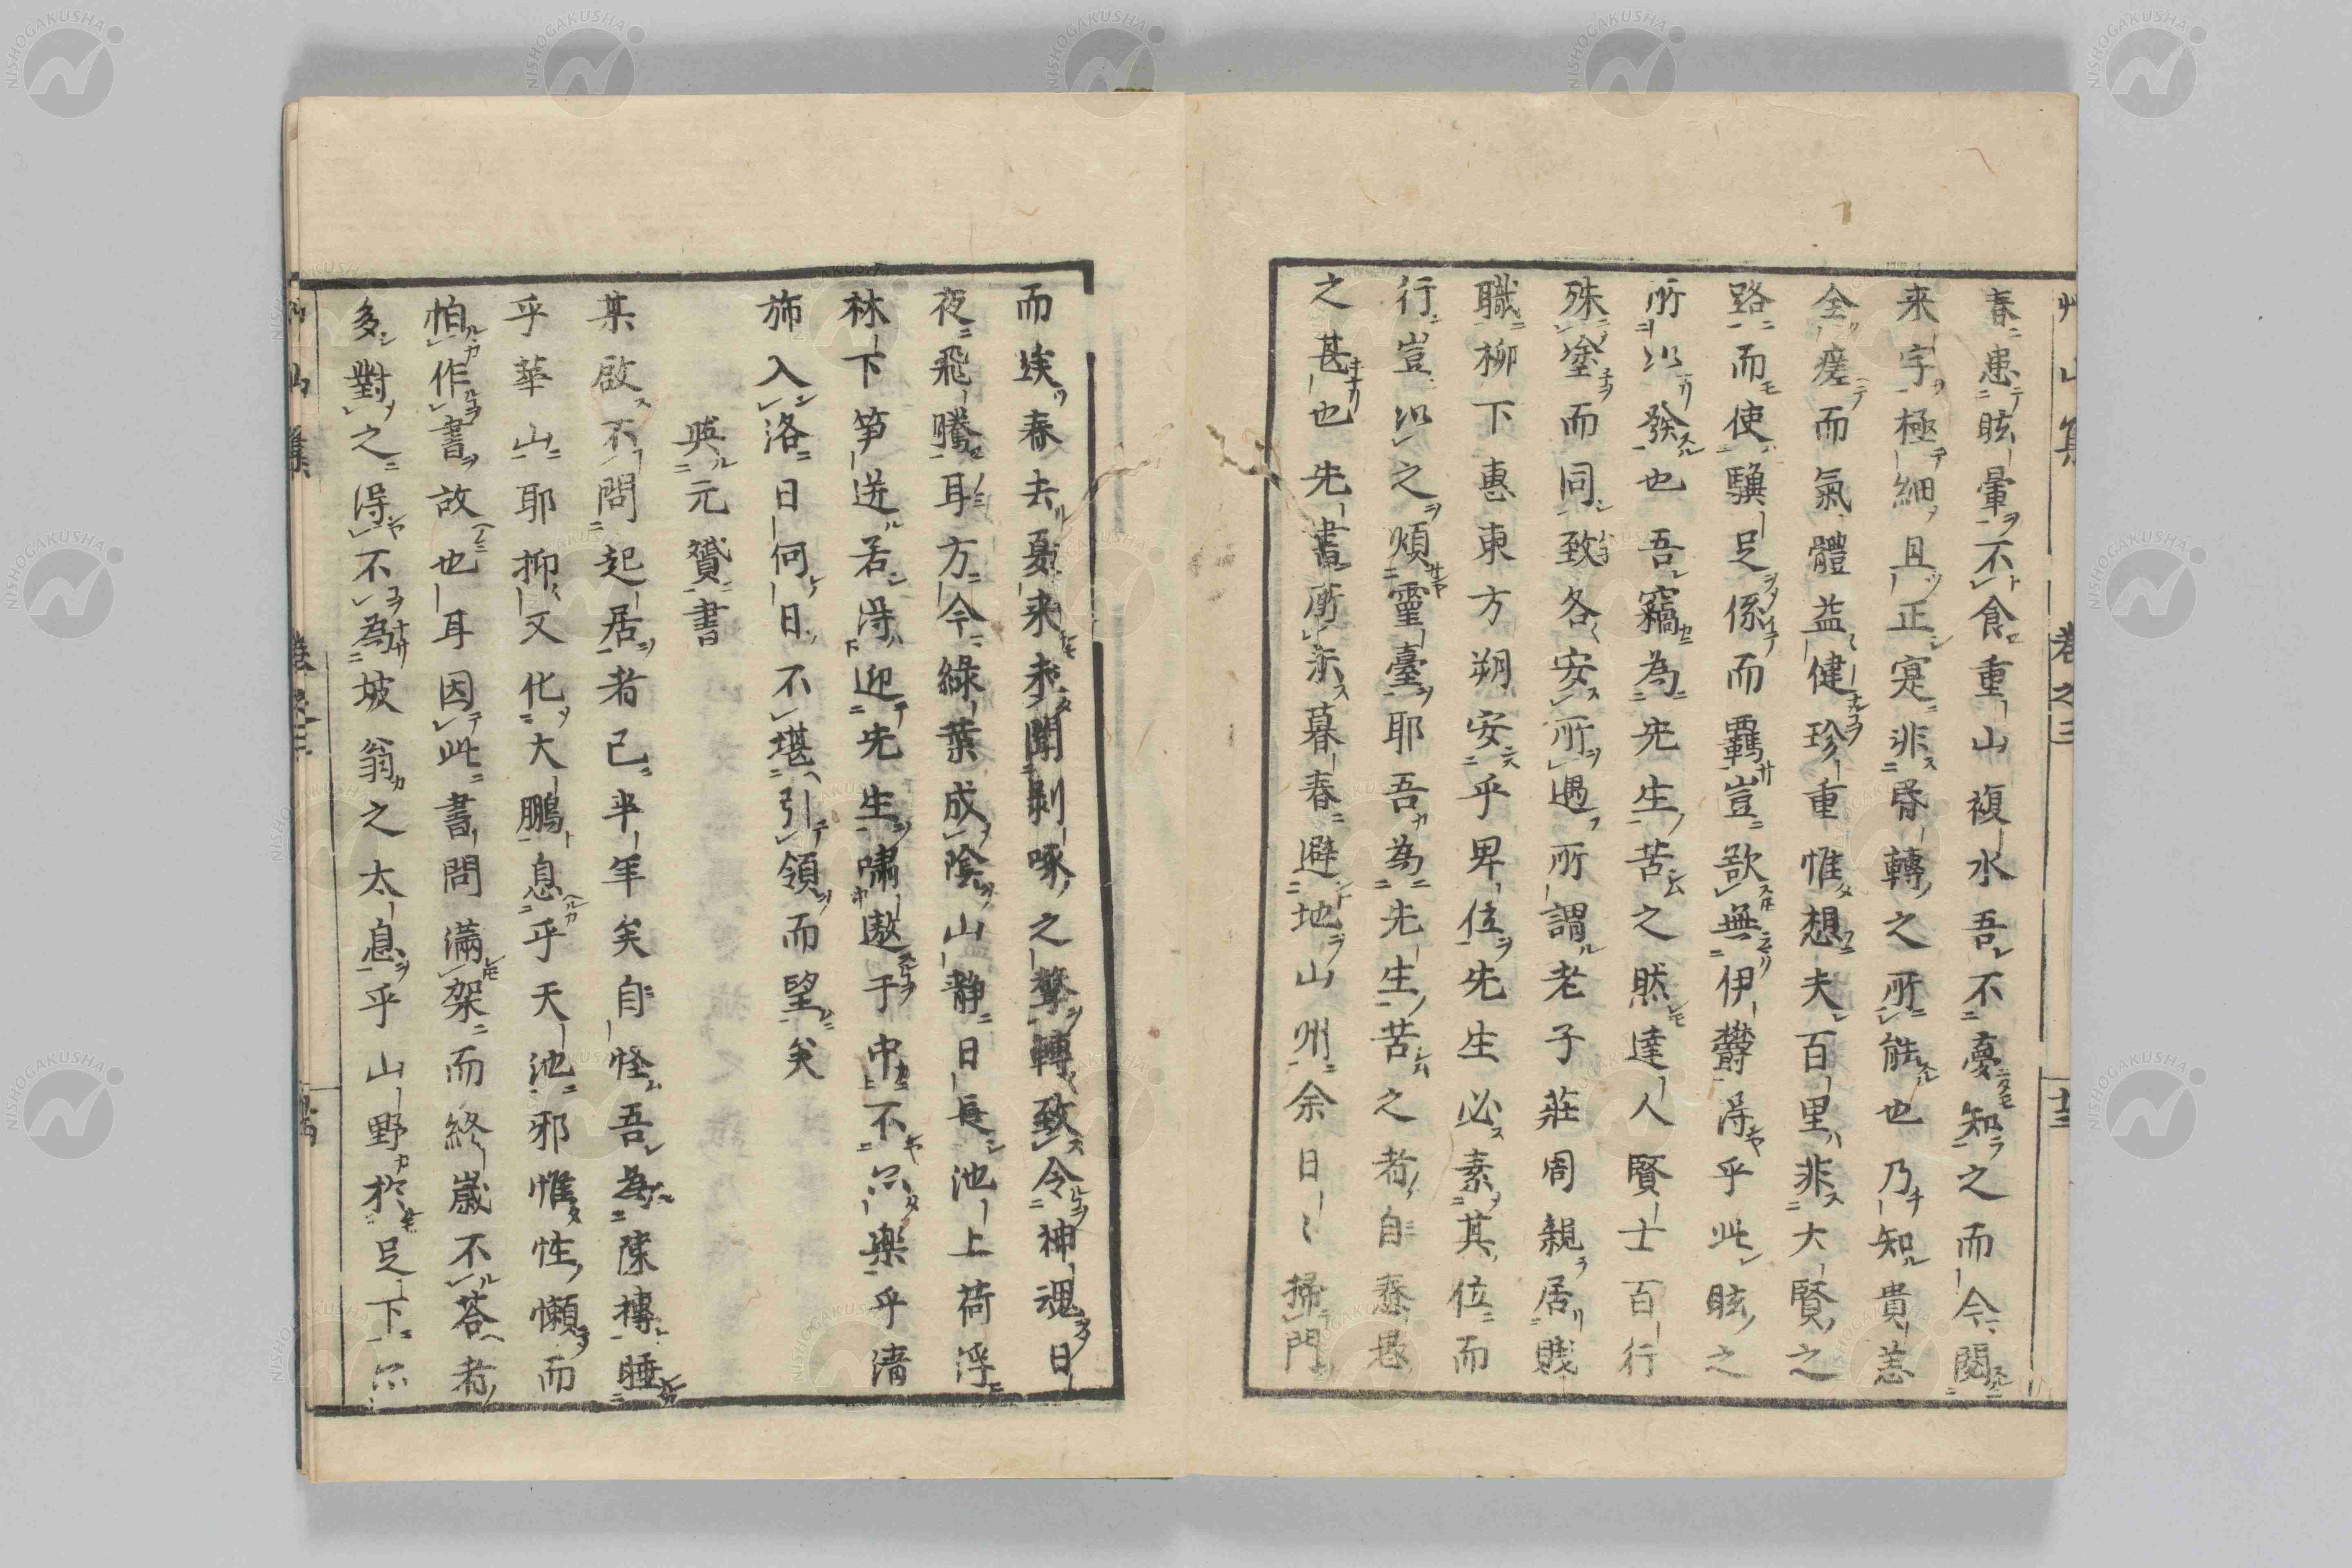 艸山集 卷之三 十三
春患眩暈不食重山複水吾不憂知之而今閱
来字極細且正寔非昏轉之所能也乃知貴恙
全瘥而氣體益健珍重惟想夫百里非大賢之
路而使驥足係而羈豈欲無伊欝得乎此眩之
所以發也吾竊為先生苦之然達人賢士百行
殊塗而同致各安所遇所謂老子莊周親居賤
職柳下惠東方朔安乎卑位先生必素其位而
行豈以之煩靈臺耶吾為先生苦之者自憃愚
之甚也先書所示暮春避地山州余日〻掃門
而竢春去夏来未聞剥啄之聲轉致令神魂日
夜飛騰耳方今綠葉成陰山静日長池上荷浮
林下筍迸若得迎先生嘯遨于中不亦樂乎淸
旆入洛日何日不堪引領而望矣
與元贇書
某啟不問起居者已半年矣自怪吾為陳摶睡
乎華山耶抑又化大鵬息乎天池邪惟性懶而
怕作書故也耳因此書問滿架而終歲不荅者
多對之得不為坡翁之太息乎山野於足下亦
艸山集 卷之三 十四
NISHOGAKUSHA